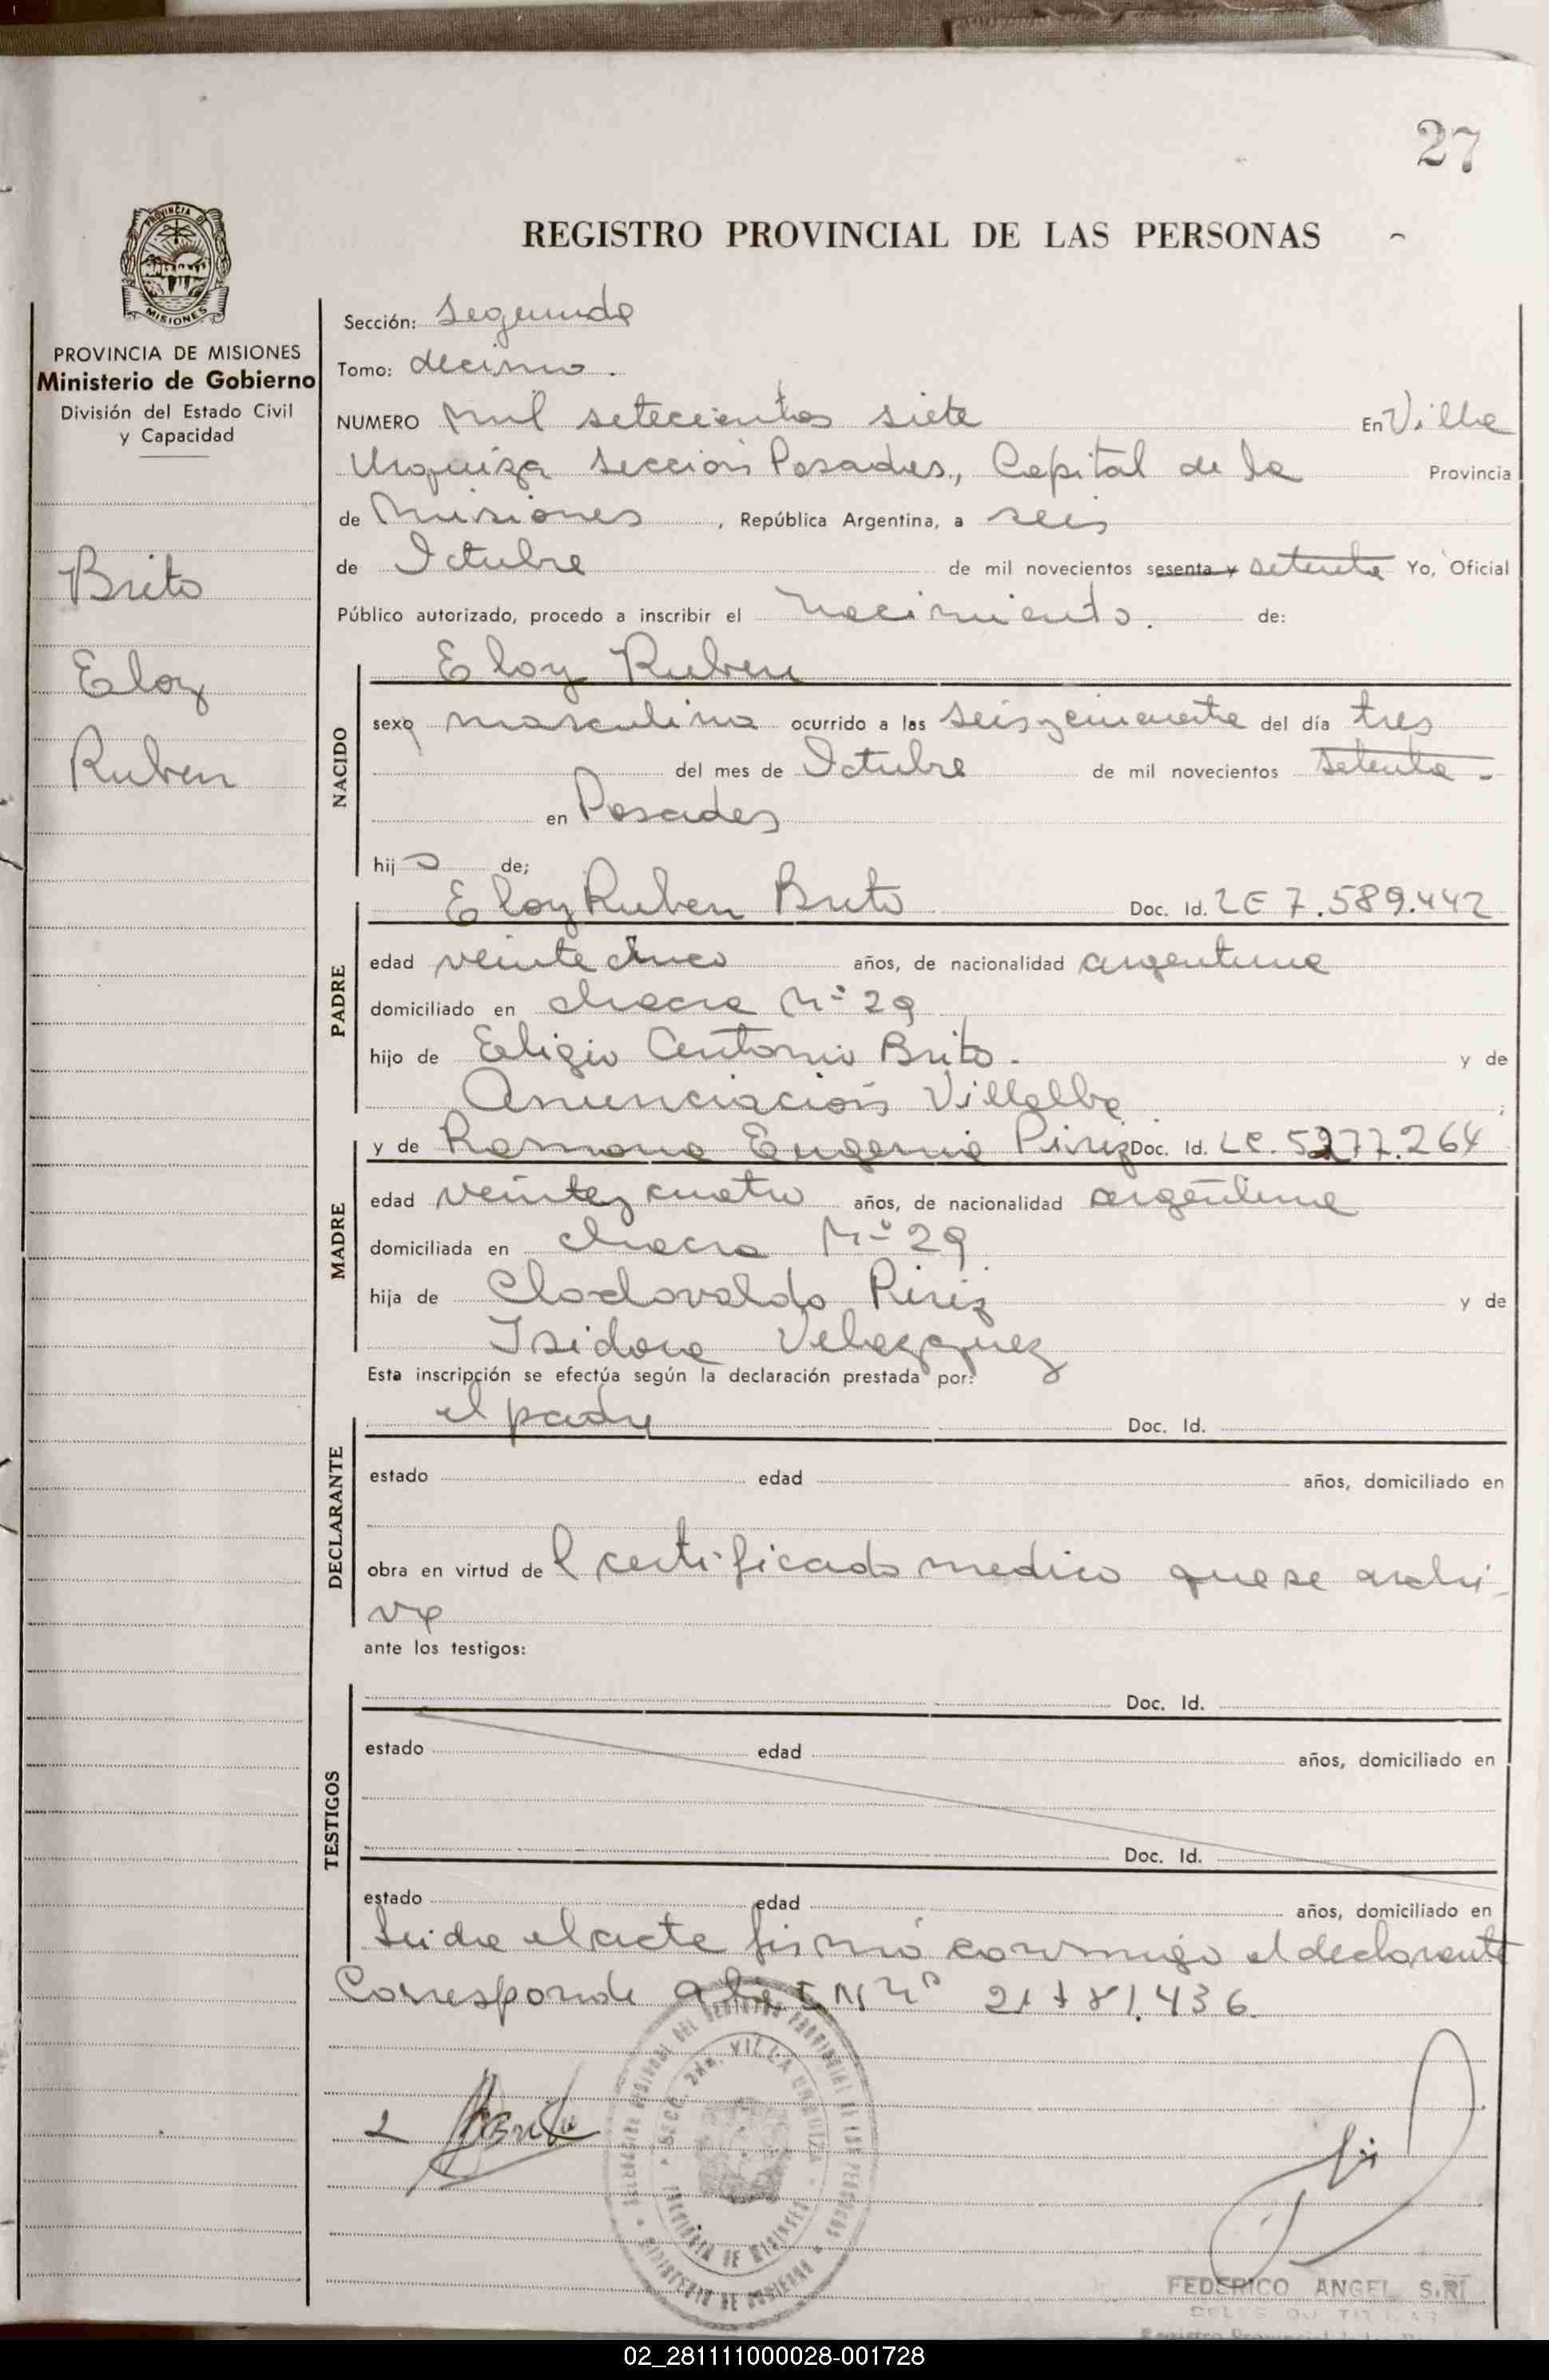 27
REGISTRO PROVINCIAL DE LAS PERSONAS
PROVINCIA DE MISIONES
Ministerio de Gobierno
División del Estado Civil
y Capacidad
Brito
Eloy
Ruben
Sección: Segunda
Tomo: decimo.
NUMERO Mil setecientos siete En Villa
Urquiza Sección Posadas, Capital de la Provincia
de Misiones, República Argentina, a seis
de Octubre de mil novecientos sesenta y setenta Yo, Oficial
Público autorizado, procedo a inscribir el Nacimiento. de:
Eloy Ruben
NACIDO
sexo masculino ocurrido a las seis y cincuenta del día tres
del mes de Octubre de mil novecientos setenta -
en Posadas
hijo de;
PADRE
Eloy Ruben Brito Doc. Id. LE 7.589.442
edad veinte cinco años, de nacionalidad argentina
domiciliado en chacra Nº 29
hijo de Eligio Antonio Brito - y de
Anunciación Villalba ;
MADRE
y de Ramona Eugenia Piriz Doc. Id. LC. 5277.264
edad veinte y cuatro años, de nacionalidad argentina
domiciliada en chacra Nº 29
hija de Clodovaldo Piriz y de
Isidora Velazquez
Esta inscripción se efectúa según la declaración prestada por:
DECLARANTE
el padre Doc. Id.
estado edad años, domiciliado en
obra en virtud de l certificado medico que se archi-
va
ante los testigos:
TESTIGOS
Doc. Id.
estado edad años, domiciliado en
Doc. Id.
estado edad años, domiciliado en
Leida el acta firmó conmigo el declarante
Corresponde a DNI Nº 21.781.436
SECC. 2da. VILLA URQUIZA
PROVINCIA DE MISIONES
MINISTERIO DE GOBIERNO
FEDERICO ANGEL
02_281111000028-001728